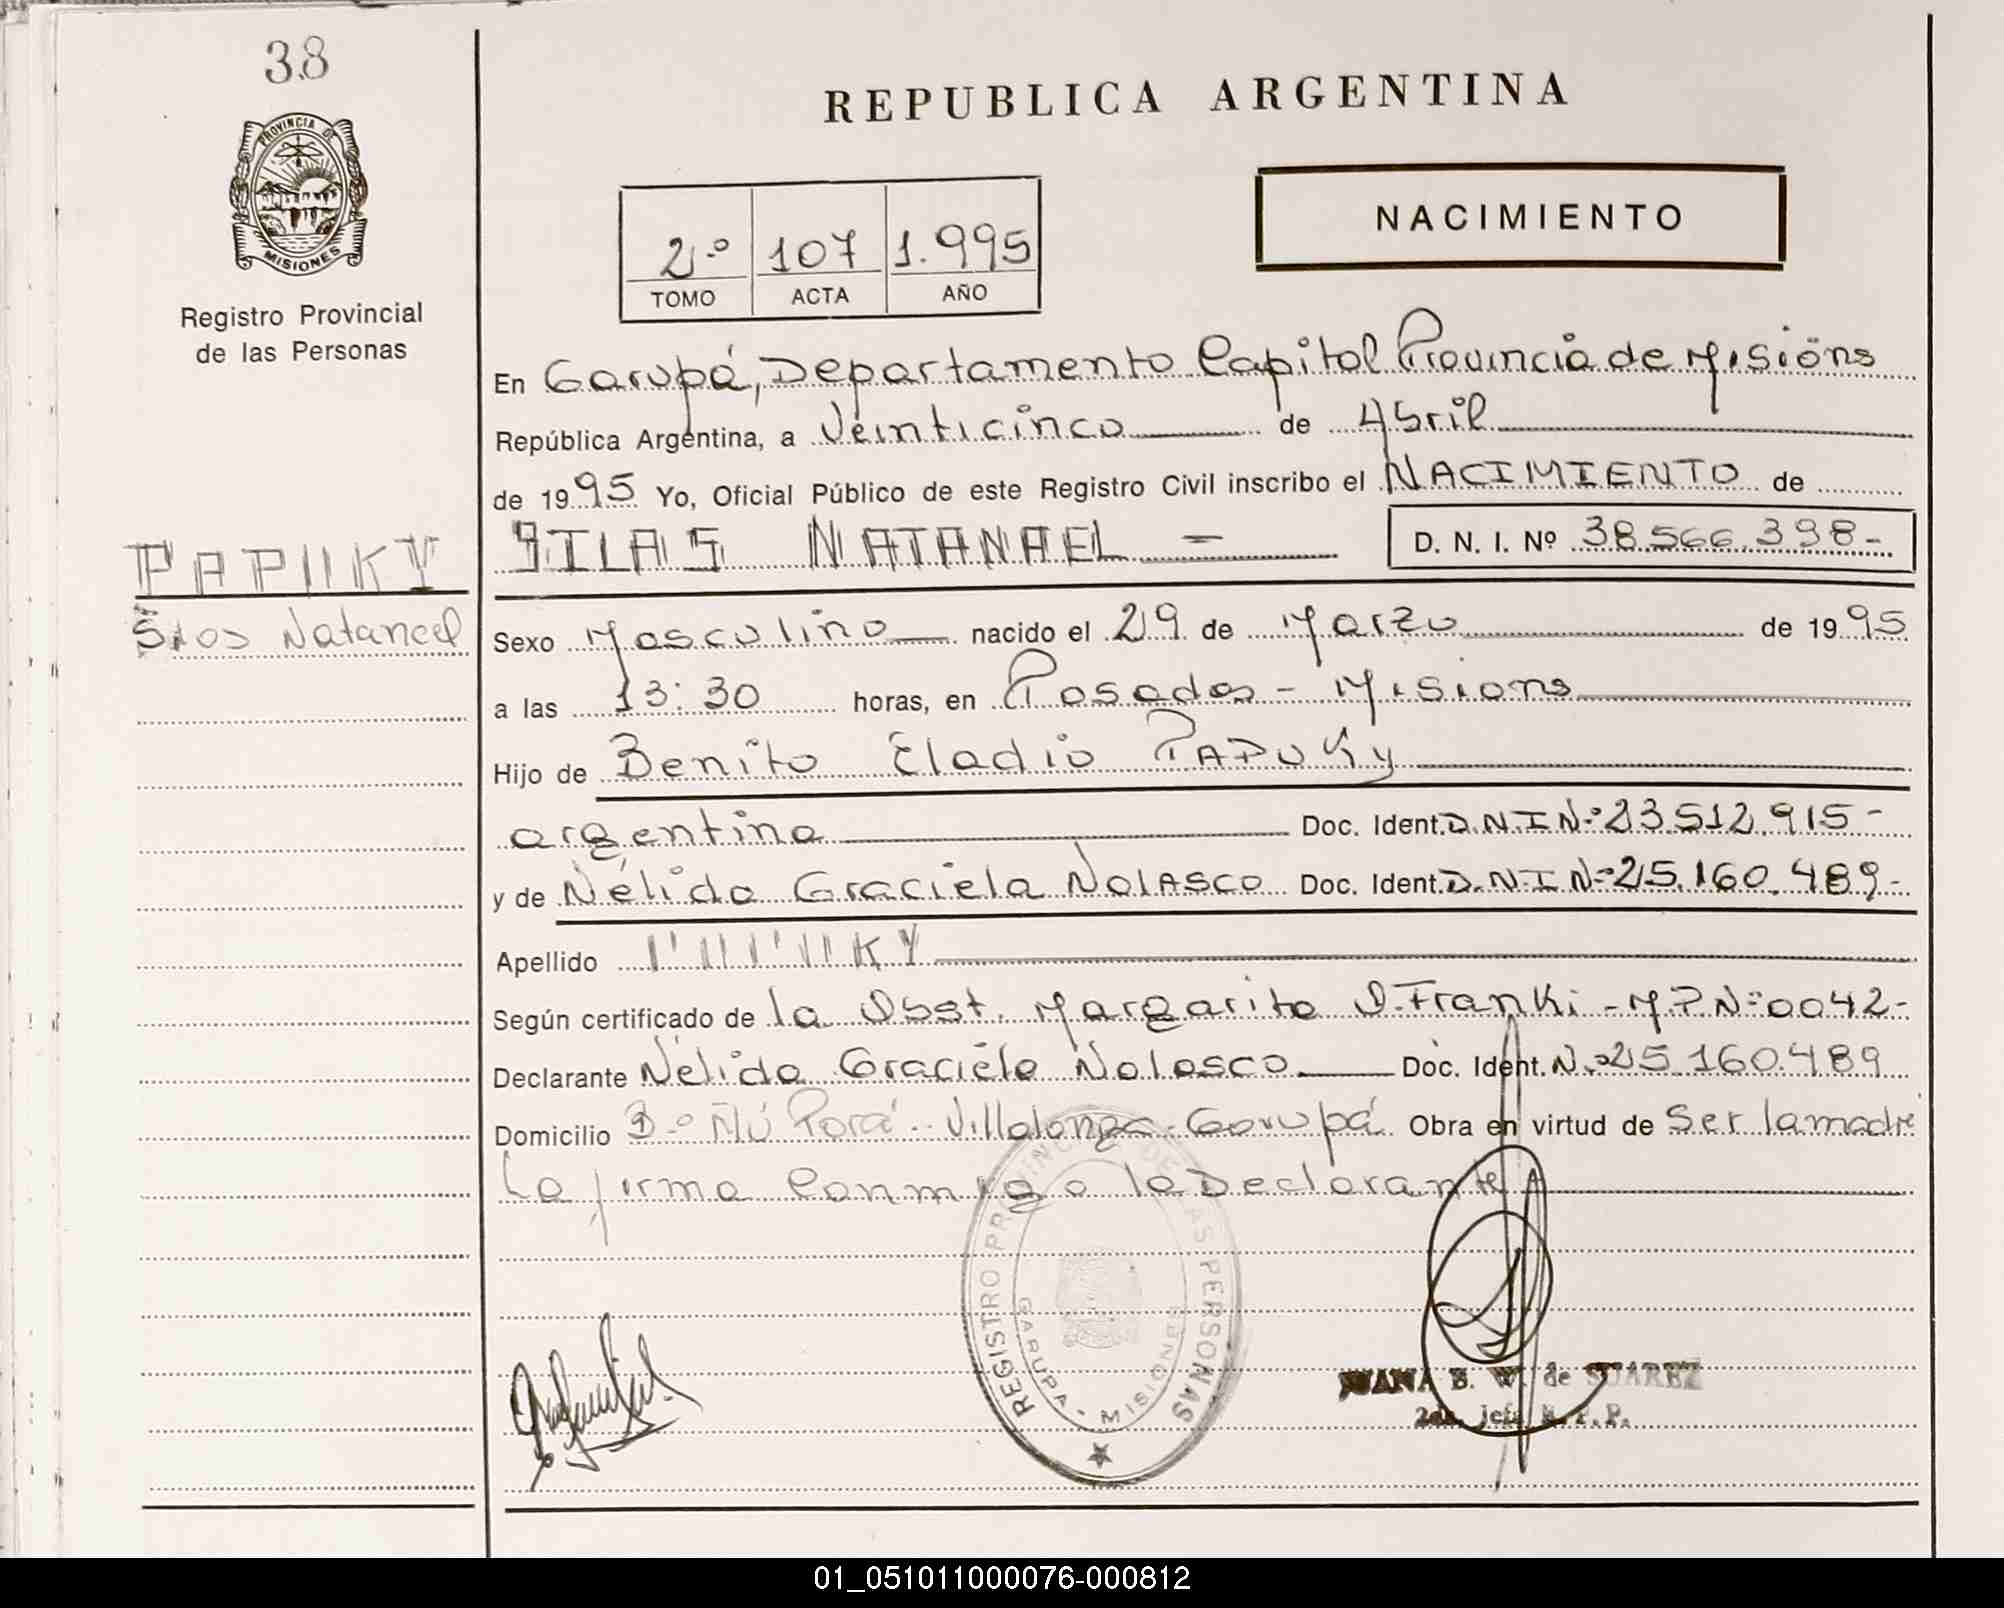 38
PROVINCIA DE
MISIONES
Registro Provincial
de las Personas
PAPUKY
Silas Natanael
REPUBLICA ARGENTINA
NACIMIENTO
2.º 107 1.995
TOMO ACTA AÑO
En Garupá, Departamento Capital Provincia de Misions
República Argentina, a Veinticinco de Abril
de 1995 Yo, Oficial Público de este Registro Civil inscribo el NACIMIENTO de
SILAS NATANAEL - D. N. I. Nº 38.566.398-
Sexo Masculino nacido el 29 de Marzo de 1995
a las 13:30 horas, en Posadas - Misions
Hijo de Benito Eladio PAPUKY
argentina Doc. Ident. D.N.I Nº 23.512.915-
y de Nélida Graciela NOLASCO Doc. Ident. D.N.I Nº 25.160.489-
Apellido PAPUKY
Según certificado de la Obst. Margarita D. Franki - M.P.Nº 0042-
Declarante Nélida Graciela Nolasco Doc. Ident. Nº 25.160.489
Domicilio Bº Ñú Porá - Villalonga - Garupá Obra en virtud de Ser la madre
La firma Conmigo la Declarante
REGISTRO PROVINCIAL DE LAS PERSONAS
GARUPA - MISIONES
JUANA E. W. de SUAREZ
2da. Jefa R. P. P.
01_051011000076-000812